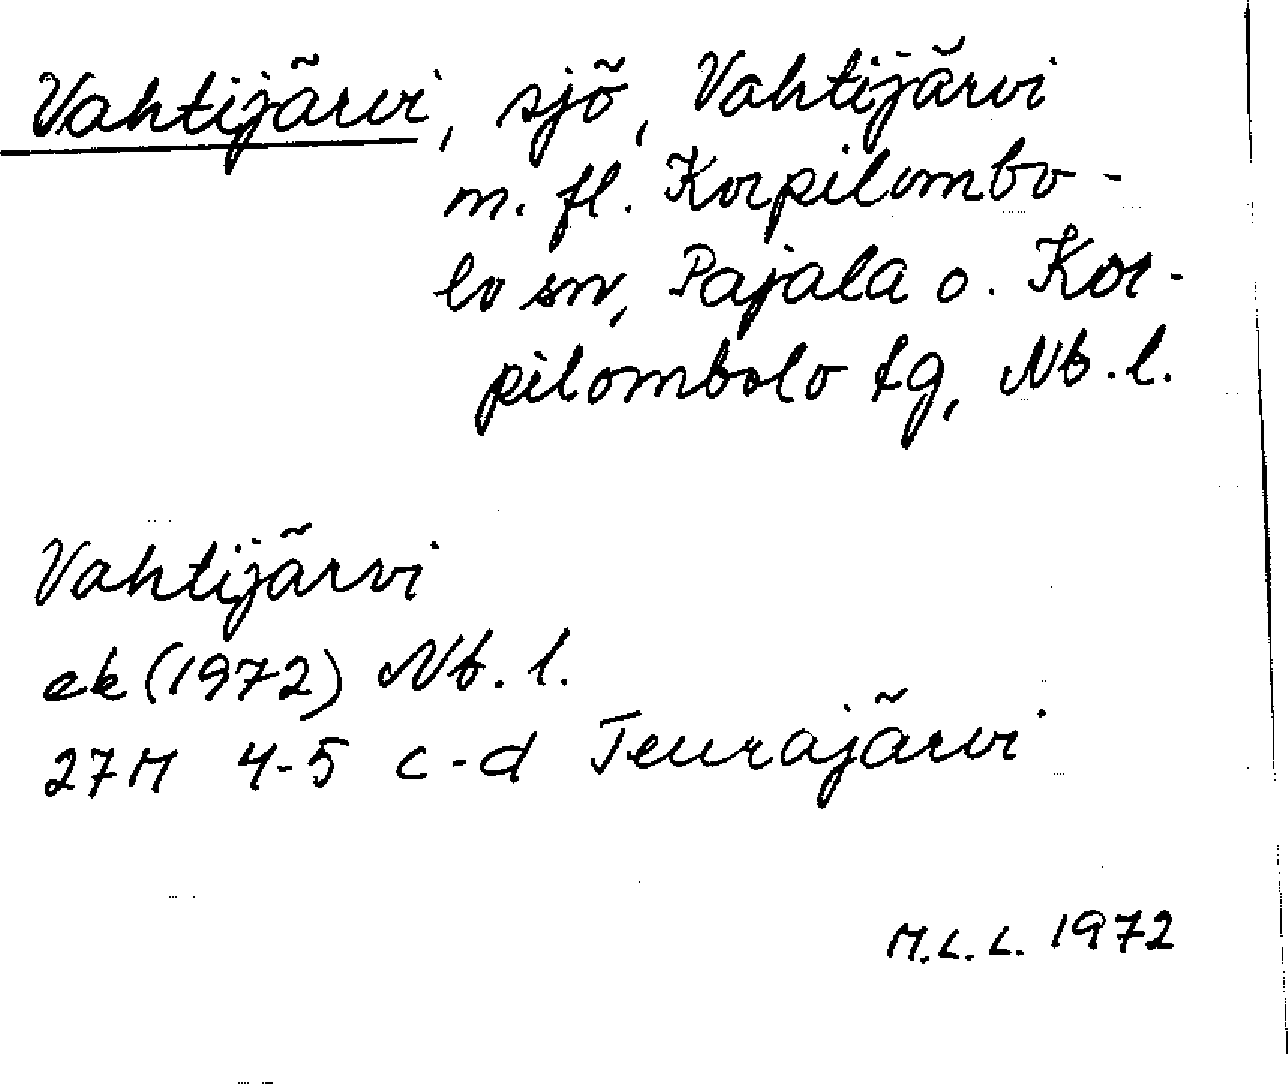 Vahtijärvi, sjö, Vahtijärvi
m. fl. Korpilombo-
lo sn, Pajala o. Kor-
pilombolo tg, Nb. l.
Vahtijärvi
ek (1972) Nb. l.
27M 4-5 c-d Teurajärvi
M.L.L. 1972